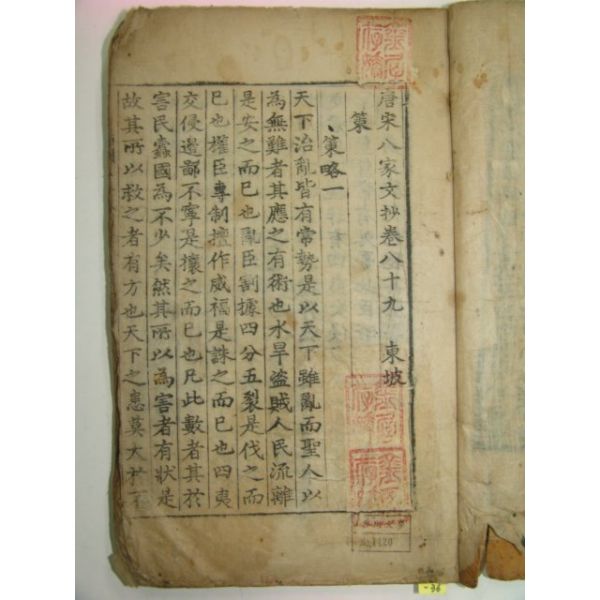 唐宋八家文抄卷八十九 東坡
策
策略一
天下治亂皆有常勢是以天下雖亂而聖人以
為無難者其應之有術也水旱盜賊人民流離
是安之而已也亂臣割據四分五裂是伐之而
已也權臣專制擅作威福是誅之而已也四夷
交侵邊鄙不寧是攘之而已也凡此數者其於
害民蠹國為不少矣然其所以為害者有狀是
故其所以救之者有方也天下之患莫大於不
-36